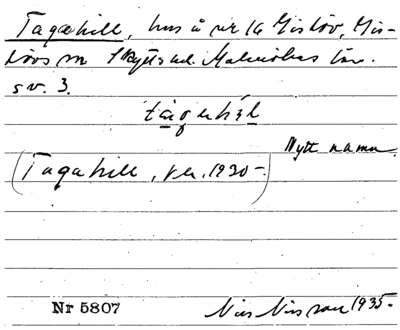 Tagakill, hus å nr 16 Gislöv, Gis-
lövs sn Skytts hd. Malmöhus län.
s v. 3.
Nytt namn.
(Tagakill, ver. 1930-.)
Nr 5807 Nils Nilsson 1935.